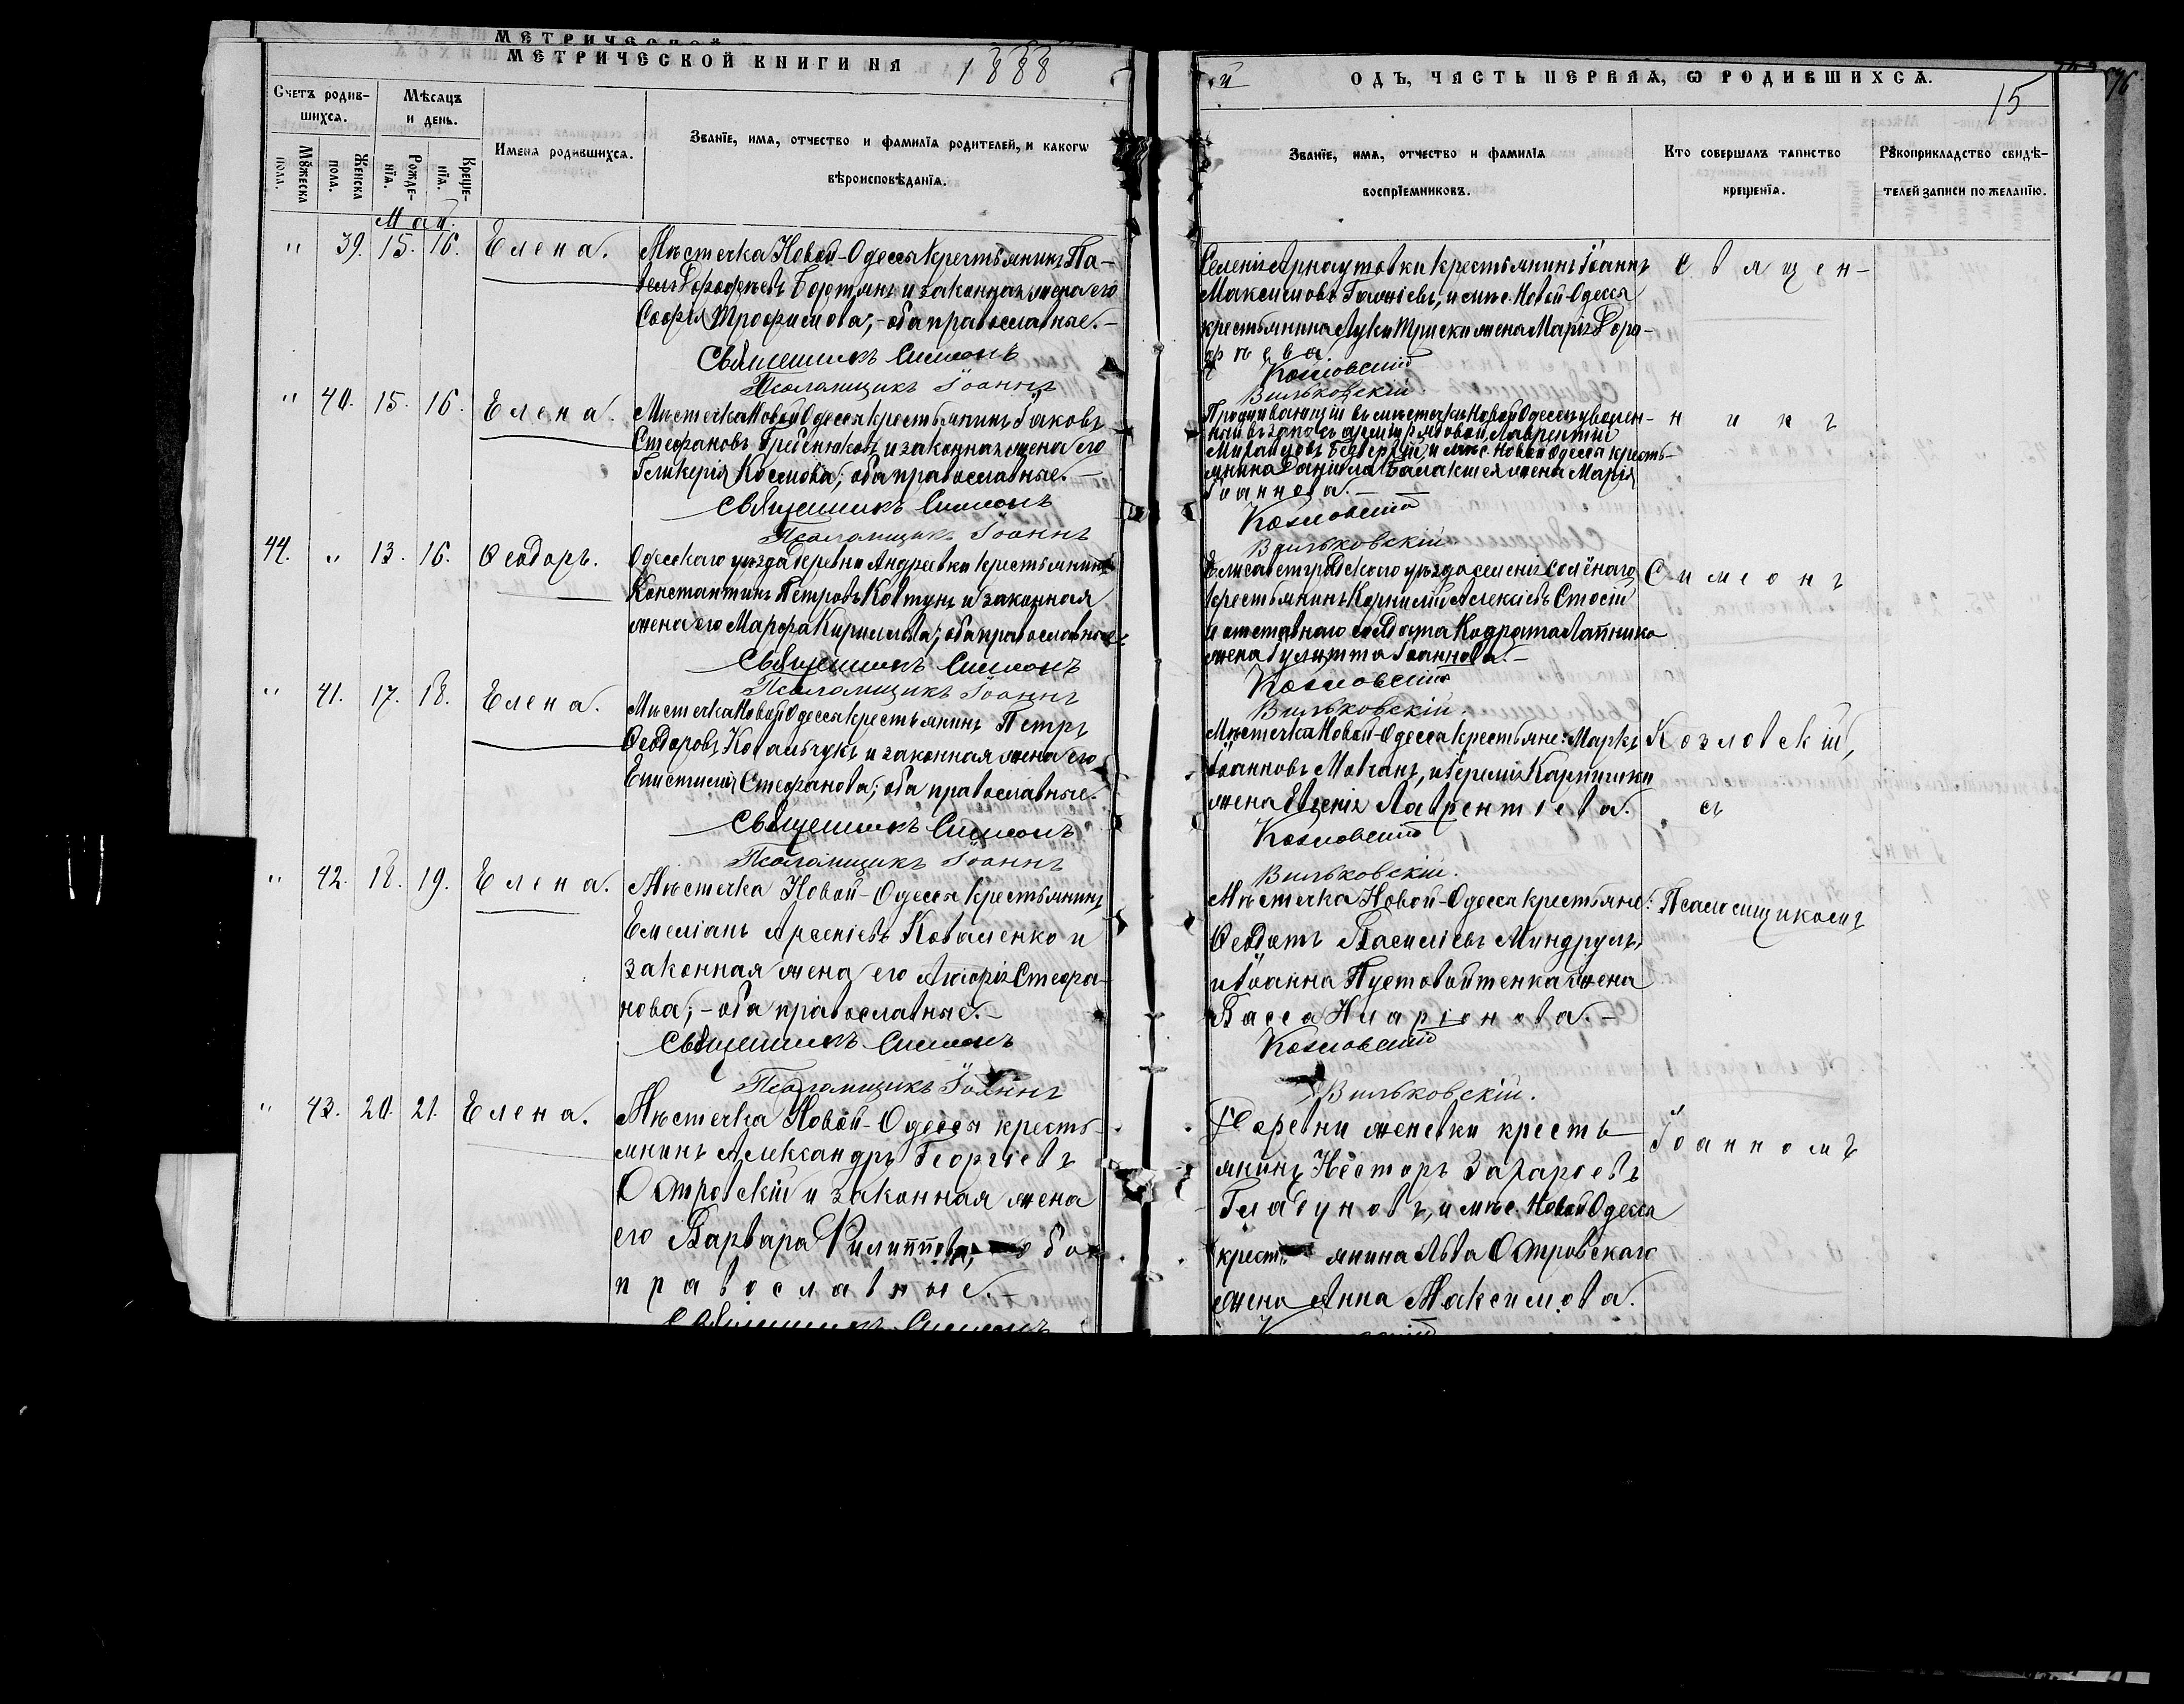 МЕТРИЧЕСКОЙ КНИГИ НА 1888
й ОДЪ, ЧАСТЬ ПЕРВАѦ, Ѡ РОДИВШИХСѦ.
15
Счетъ родив-
шихсѧ.
Мѣсѧцъ
и день.
Мꙋжеска
пола.
Женска
пола.
Рожде-
нїѧ.
Креще-
нїѧ.
Имена родившихсѧ.
Званїе, имѧ, отчество и фамилїѧ родителей, и какогѡ
вѣроисповѣданїѧ.
Званїе, имѧ, отчество и фамилїѧ
воспрїемниковъ.
Кто совершалъ таинство
крещенїѧ.
Рꙋкоприкладство свидѣ-
телей записи по желанїю.
Май.
" 39. 15. 16. Елена.
Мѣстечка Новой-Одессы крестьянинъ Па-
велъ Дорофеевъ Бортянъ и законная жена его
Софія Трофимова; - оба православные. -
Священникъ Симеонъ
Псаломщикъ Іоаннъ
Селенія Арнаутовки крестьянинъ Іоаннъ
Максимовъ, и мѣс. Новой-Одессы
крестьянина Луки жена Марія Доро-
фѣева
Козловскій
Вильковскій.
Священ-
" 40. 15. 16. Елена.
Мѣстечка Новой Одессы крестьянинъ Іаковъ
Стефановъ Гребенюковъ и законная жена его
Гликерія Космова; оба православные. -
Священникъ Симеонъ
Псаломщикъ Іоаннъ
Проживающій въ мѣстечкѣ Новой Одессѣ уволен-
ный въ запасъ арміи рядовой Лаврентій
Михаиловъ и мѣс. Новой Одессы кресть-
янина Даніила Балакшея жена Марія
Іоаннова. -
Козловскій
Вильковскій
никъ
44. " 13. 16. Ѳеодоръ.
Одесскаго уѣзда деревни Андреевки крестьянинъ
Константинъ Петровъ Ковтунъ и законная
жена его Марфа Кириллова; оба православные.
Священникъ Симеонъ
Псаломщикъ Іоаннъ
Елисаветградскаго уѣзда селенія Солёнаго
крестьянинъ Корнилій Алексіевъ Стосій
и отставного солдата Кодрата
жена Іулитта Іоаннова. -
Козловскій
Вильковскій.
Симеонъ
" 41. 17. 18. Елена.
Мѣстечка Новой Одессы крестьянинъ Петръ
Ѳеодоровъ Ковальчукъ и законная жена его
Епистимія Стефанова; оба православные.
Священникъ Симеонъ
Псаломщикъ Іоаннъ
Мѣстечка Новой-Одессы крестьяне: Маркъ
Іоанновъ Мовчанъ, и
жена Евгенія Лаврентіева.
Козловскій
Вильковскій.
Козловскій,
съ
" 42. 18. 19. Елена.
Мѣстечка Новой-Одессы крестьянинъ
Емеліанъ Арсеніевъ Коваленко и
законная жена его Стефа-
нова; - оба православные. -
Священникъ Симеонъ
Псаломщикъ Іоаннъ
Мѣстечка Новой-Одессы крестьяне:
Ѳеодотъ Василіевъ Миндрулъ,
и Іоанна Пустовойтенка жена
Васса Иларіонова. -
Козловскій
Вильковскій.
Псаломщикомъ
" 43. 20. 21. Елена.
Мѣстечка Новой-Одессы кресть-
янинъ Александръ Георгіевъ
Островскій и законная жена
его Варвара Филиппова; оба
православные. -
Священникъ Симеонъ
крестьянинъ Несторъ Захаровъ
Гладуновъ, и мѣс. Новой Одессы
крестьянина Льва Островскаго
жена Анна Максимова.
Іоанномъ